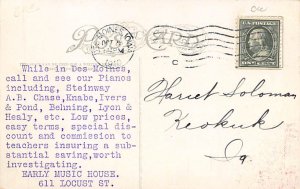 POST CARD
While in Des Moines,
call and see our Pianos
including, Steinway
A.B. Chase, Knabe, Ivers
& Pond, Behning, Lyon &
Healy, etc. Low prices,
easy terms, special dis-
count and commission to
teachers insuring a sub-
stantial saving, worth
investigating.
EARLY MUSIC HOUSE.
611 LOCUST ST.
Harriet Soloman
Keokuk
Ia.